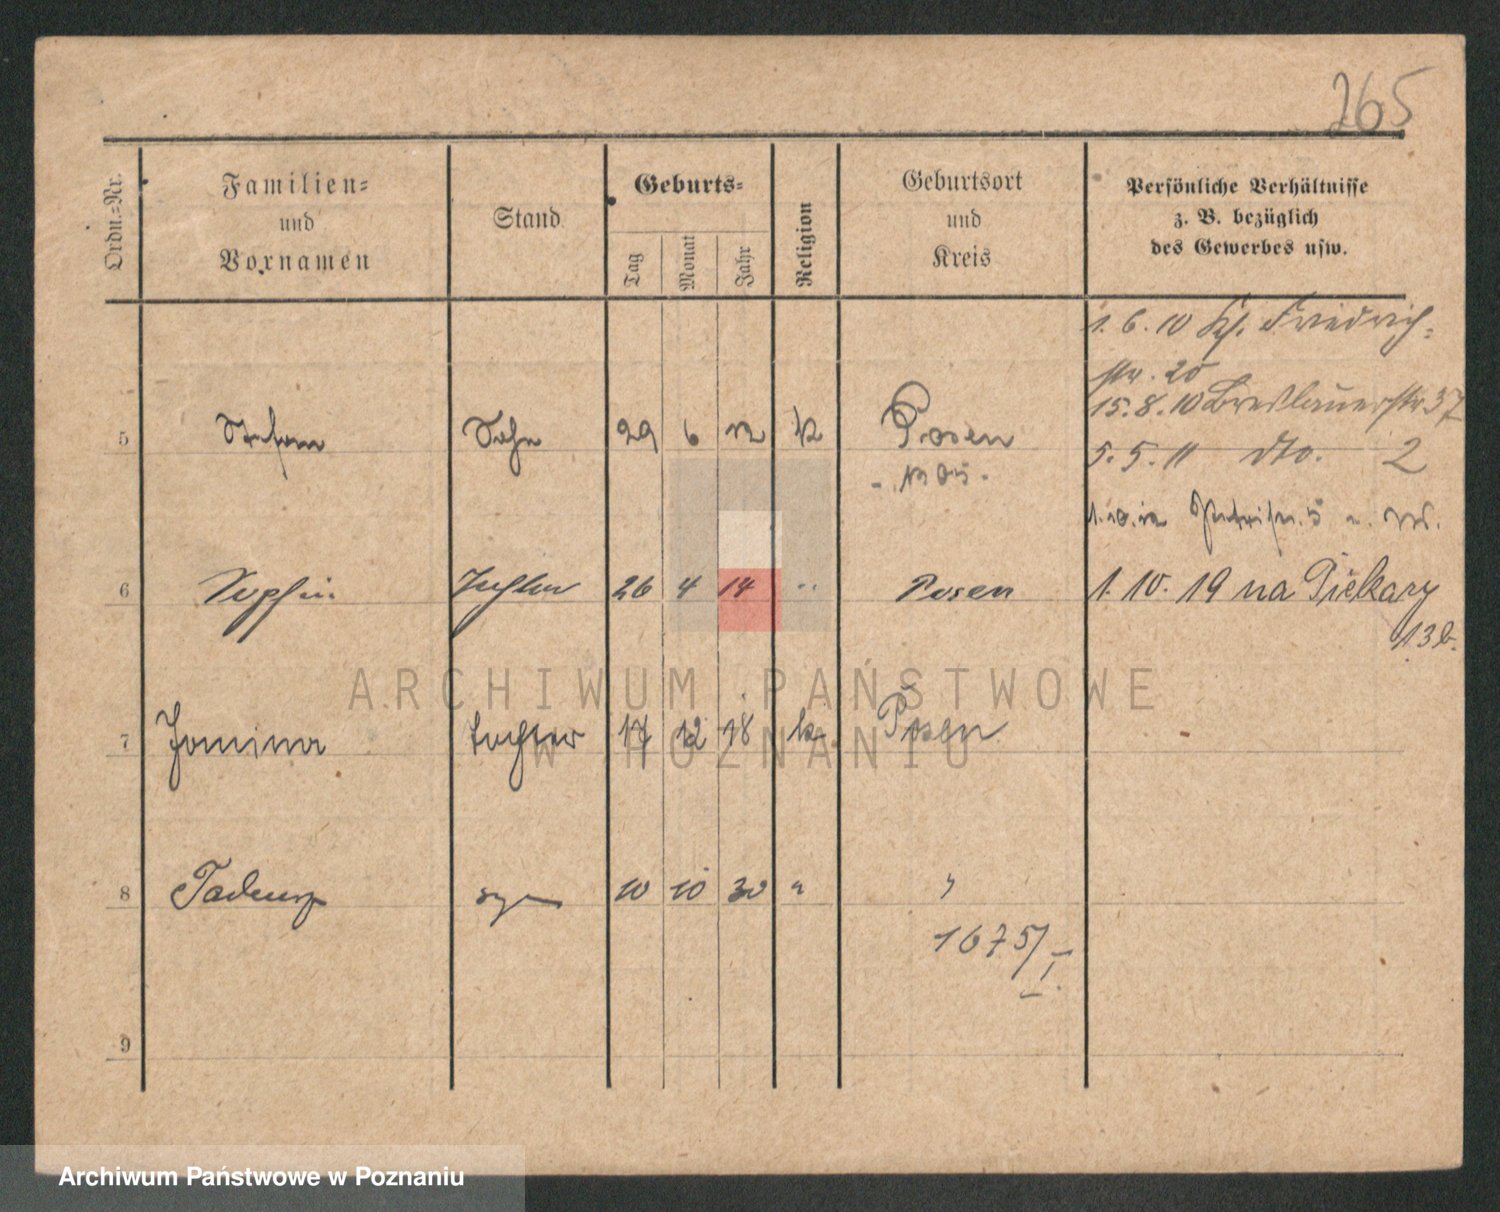 265
Ordn.=Nr.
Familien=
und
Vornamen
Stand
Geburts=
Tag
Monat
Jahr
Religion
Geburtsort
und
Kreis
Persönliche Verhältnisse
z. B. bezüglich
des Gewerbes usw.
1. 6. 10 Kl. Friedrich=
str. 20
15. 8. 10 Breslauerstr 37
5 Stefan Sohn 29 6 12 k Posen
5. 5. 11 dto. 2
1. 10. 12
6 Sophie Tochter 26 4 14 " Posen 1. 10. 19 na Piekary
13b.
7 Janina tochter 17 12 18 k Posen
8 Tadeusz syn 10 10 30 " "
1675/I.
9
ARCHIWUM PAŃSTWOWE
W POZNANIU
Archiwum Państwowe w Poznaniu